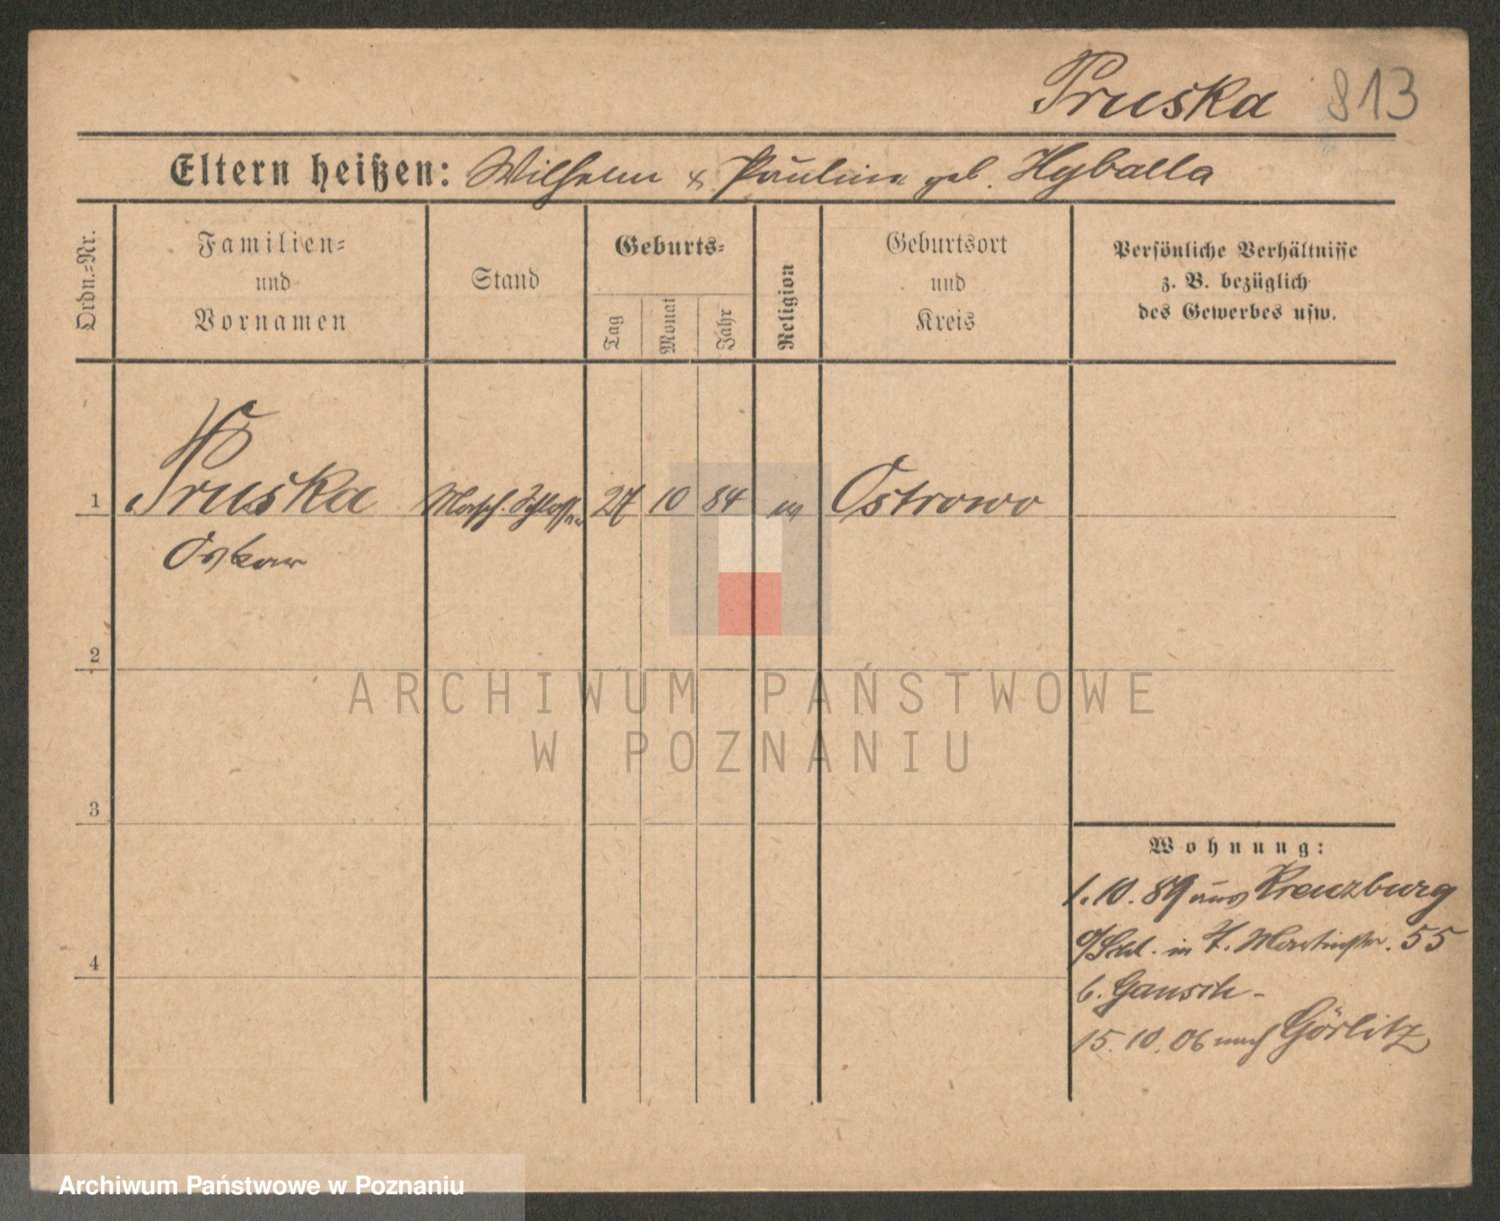 Pruska 813
Eltern heißen: Wilhelm & Pauline geb. Hyballa
Ordn.=Nr.
Familien=
und
Vornamen
Stand
Geburts=
Tag
Monat
Jahr
Religion
Geburtsort
und
Kreis
Persönliche Verhältnisse
z. B. bezüglich
des Gewerbes usw.
1 Pruska Masch. Schlosser 27 10 84 Ostrowo
Oskar
2
3
4
Wohnung:
1.10. aus Kreuzburg
in Martinstr. 55
b. Gansch
15.10.06 nach Görlitz
ARCHIWUM PAŃSTWOWE
W POZNANIU
Archiwum Państwowe w Poznaniu